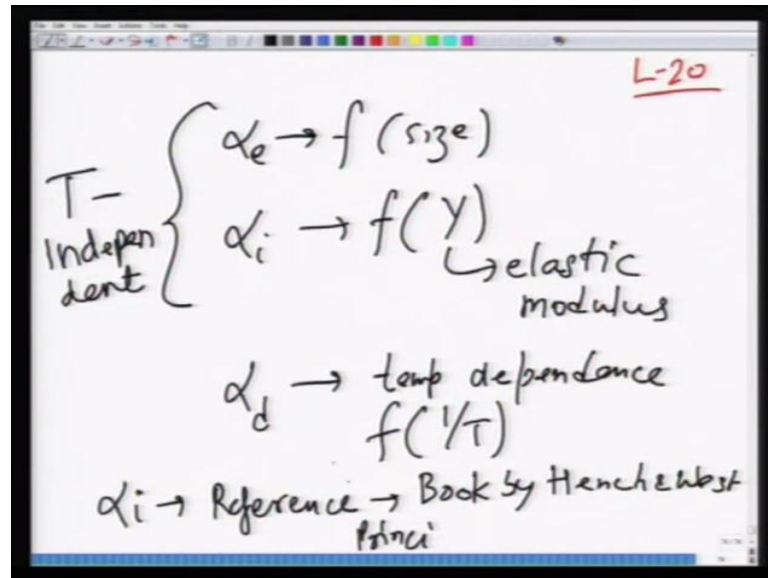 L-20
αe → f (size)
T-
Indepen
dent
αi → f(Y)
↳ elastic
modulus
αd → temp dependence
f(1/T)
αi → Reference → Book by Hench & West
Princi